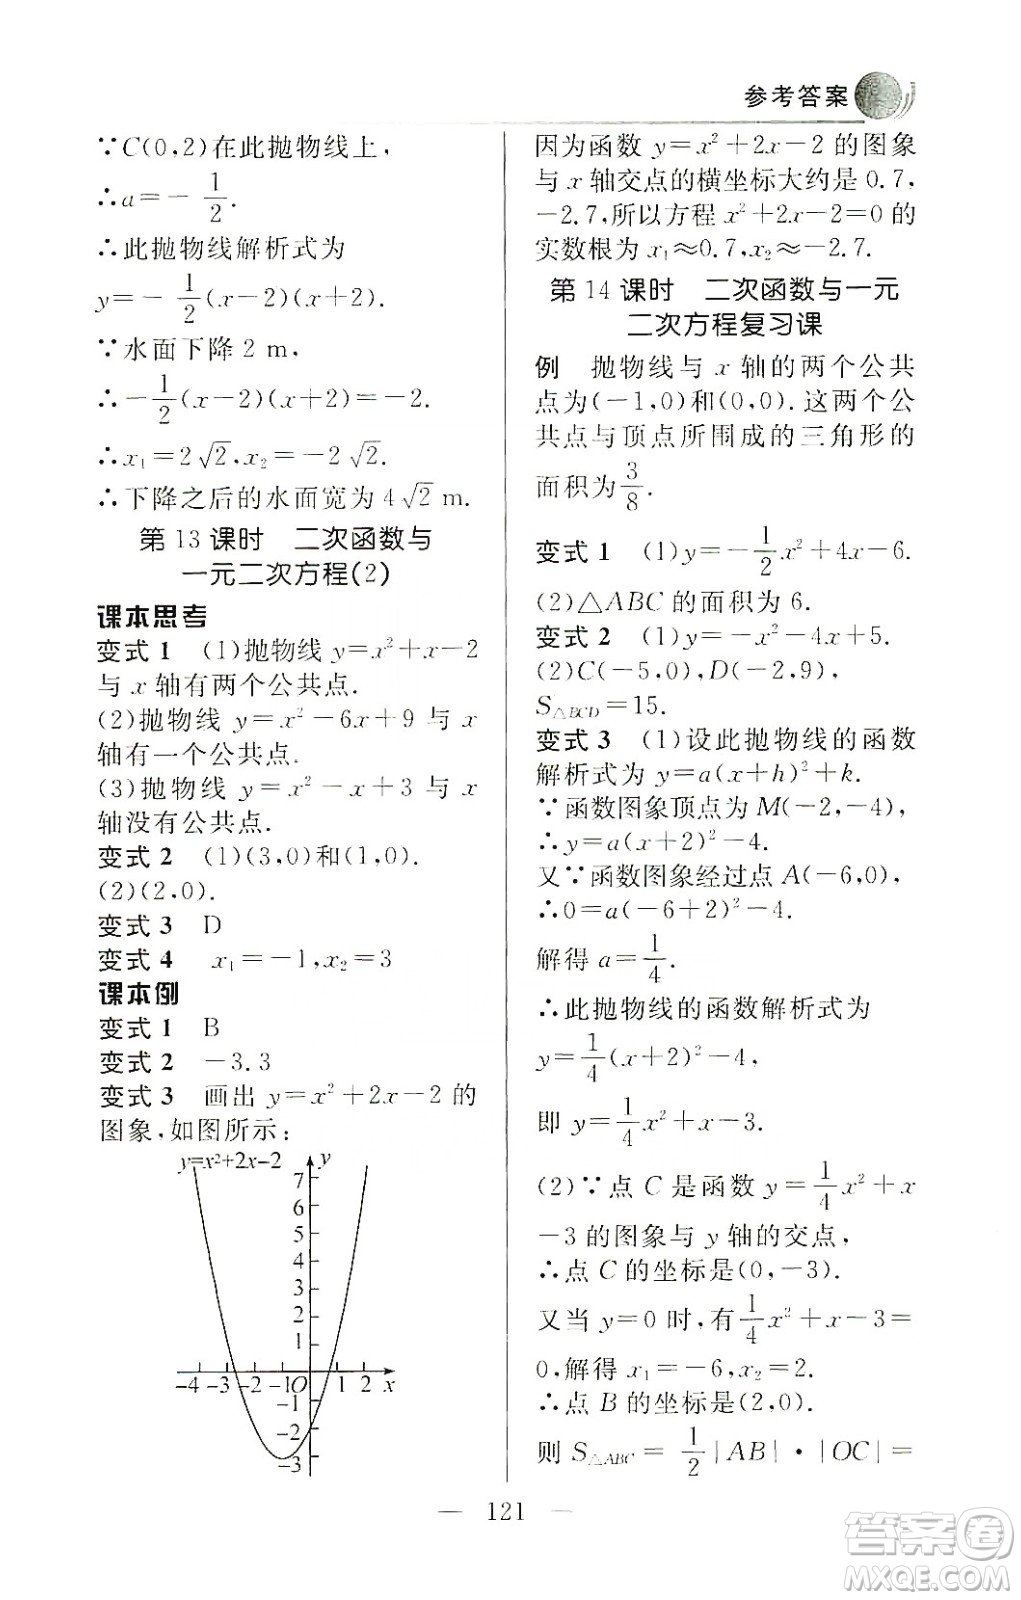 参考答案
∵C(0,2)在此抛物线上,
∴a=-1/2.
∴此抛物线解析式为
y=-1/2(x-2)(x+2).
∵水面下降2 m,
∴-1/2(x-2)(x+2)=-2.
∴x₁=2√2,x₂=-2√2.
∴下降之后的水面宽为4√2 m.
第13课时 二次函数与
一元二次方程(2)
课本思考
变式1 (1)抛物线y=x²+x-2
与x轴有两个公共点.
(2)抛物线y=x²-6x+9与x
轴有一个公共点.
(3)抛物线y=x²-x+3与x
轴没有公共点.
变式2 (1)(3,0)和(1,0).
(2)(2,0).
变式3 D
变式4 x₁=-1,x₂=3
课本例
变式1 B
变式2 -3.3
变式3 画出y=x²+2x-2的
图象,如图所示:
y=x²+2x-2
y
7
6
5
4
3
2
1
-4 -3 -2 -1 O 1 2 x
-1
-2
-3
因为函数y=x²+2x-2的图象
与x轴交点的横坐标大约是0.7,
-2.7,所以方程x²+2x-2=0的
实数根为x₁≈0.7,x₂≈-2.7.
第14课时 二次函数与一元
二次方程复习课
例 抛物线与x轴的两个公共
点为(-1,0)和(0,0).这两个公
共点与顶点所围成的三角形的
面积为3/8.
变式1 (1)y=-1/2x²+4x-6.
(2)△ABC的面积为6.
变式2 (1)y=-x²-4x+5.
(2)C(-5,0),D(-2,9),
S△BCD=15.
变式3 (1)设此抛物线的函数
解析式为y=a(x+h)²+k.
∵函数图象顶点为M(-2,-4),
∴y=a(x+2)²-4.
又∵函数图象经过点A(-6,0),
∴0=a(-6+2)²-4.
解得a=1/4.
∴此抛物线的函数解析式为
y=1/4(x+2)²-4,
即y=1/4x²+x-3.
(2)∵点C是函数y=1/4x²+x
-3的图象与y轴的交点,
∴点C的坐标是(0,-3).
又当y=0时,有1/4x²+x-3=
0,解得x₁=-6,x₂=2.
∴点B的坐标是(2,0).
则S△ABC=1/2|AB|·|OC|=
— 121 —
答案卷
MXQE.COM